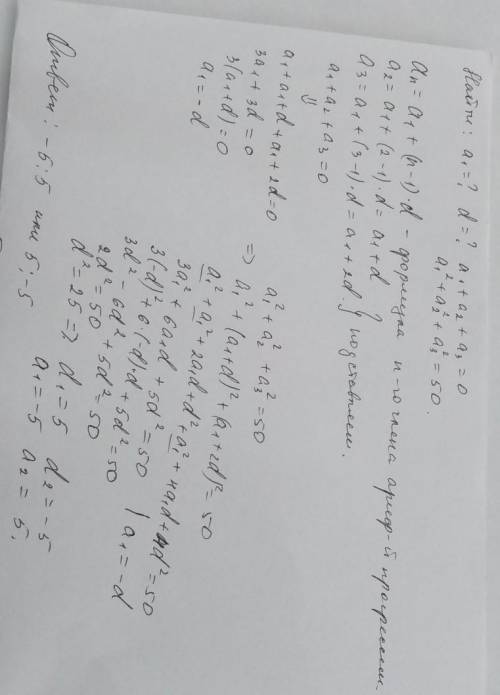 Найти: a₁ = ? d = ? a₁ + a₂ + a₃ = 0
a₁² + a₂² + a₃² = 50.
aₙ = a₁ + (n-1)·d - формула n-го члена ариф-й прогрессии.
a₂ = a₁ + (2-1)·d = a₁ + d
a₃ = a₁ + (3-1)·d = a₁ + 2d. } подставляем.
a₁ + a₂ + a₃ = 0
⇓
a₁ + a₁ + d + a₁ + 2d = 0
3a₁ + 3d = 0
3(a₁ + d) = 0
a₁ = -d
=> a₁² + a₂² + a₃² = 50
a₁² + (a₁+d)² + (a₁+2d)² = 50
a₁² + a₁² + 2a₁d + d² + a₁² + 4a₁d + 4d² = 50
3a₁² + 6a₁d + 5d² = 50 | a₁ = -d
3(-d)² + 6·(-d)·d + 5d² = 50
3d² - 6d² + 5d² = 50
2d² = 50
d² = 25 => d₁ = 5 d₂ = -5
a₁ = -5 a₂ = 5.
Ответ: -5; 5 или 5; -5